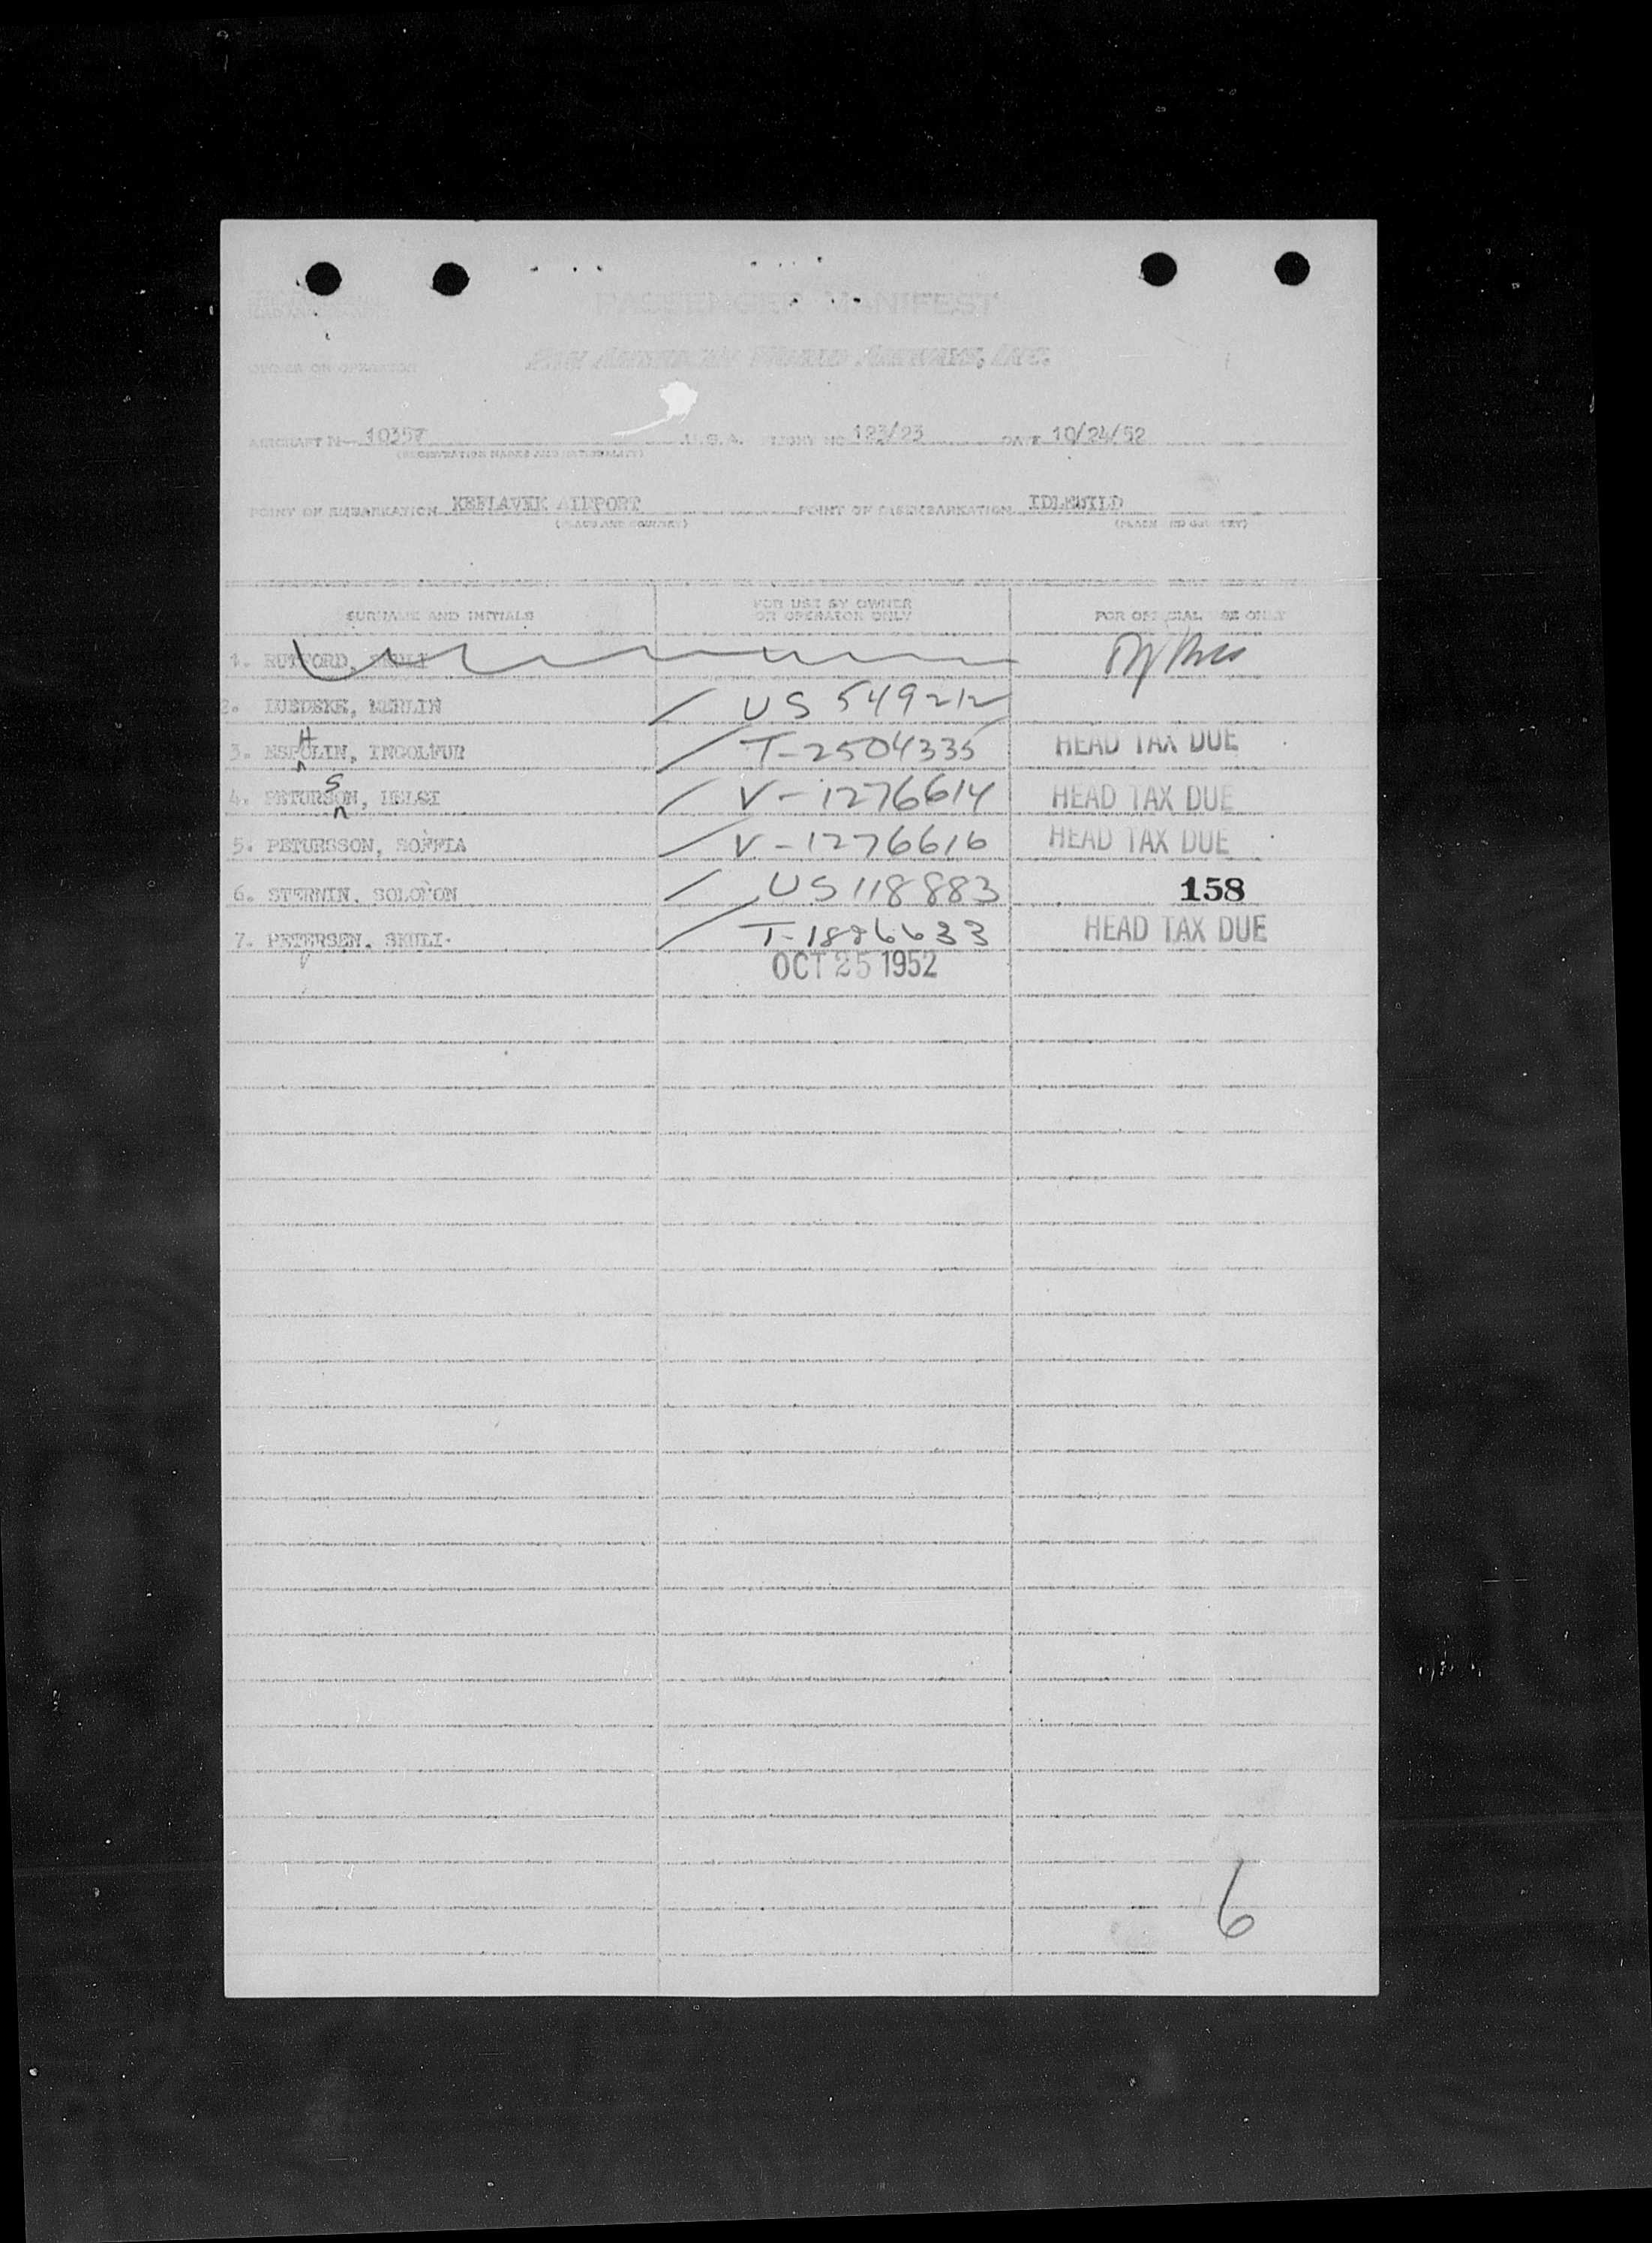 PASSENGER MANIFEST
OWNER OR OPERATOR PAN AMERICAN WORLD AIRWAYS, INC.
AIRCRAFT N- 10357 U.S.A. FLIGHT NO 123/23 DATE 10/24/52
(REGISTRATION MARKS AND NATIONALITY)
POINT OF EMBARKATION KEFLAVEK AIRPORT POINT OF DISEMBARKATION IDLEWILD
(PLACE AND COUNTRY) (PLACE AND COUNTRY)
SURNAME AND INITIALS FOR USE BY OWNER OR OPERATOR ONLY FOR OFFICIAL USE ONLY
1. RUTFORD, SKULI
2. LUEDEKE, MERLIN US 549212
3. ESPHOLIN, INGOLFUR T-2504335 HEAD TAX DUE
4. PETURSSON, HELGI V-1276614 HEAD TAX DUE
5. PETURSSON, SOFFIA V-1276616 HEAD TAX DUE
6. STERNIN, SOLOMON US 118883 158
7. PETERSEN, SKULI. T-1886633 HEAD TAX DUE
OCT 25 1952
6